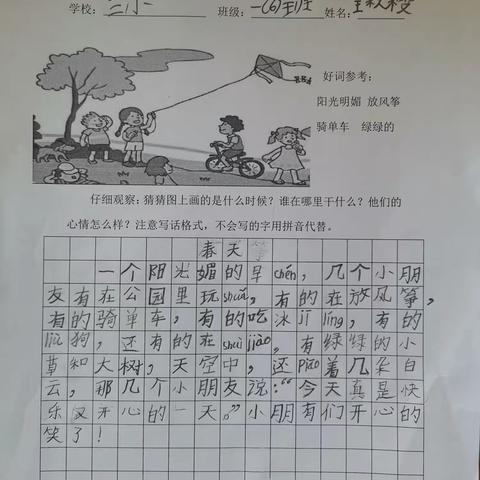 学校：三小 班级：一(6)班 姓名：
好词参考：
阳光明媚 放风筝
骑单车 绿绿的
仔细观察：猜猜图上画的是什么时候？谁在哪里干什么？他们的
心情怎么样？注意写话格式，不会写的字用拼音代替。
春天
一个阳光媚的早chén，几个小朋
友有在公园里玩shuǎ，有的在放风筝，
有的骑单车，有的吃冰jī líng，有的
liú狗，还有的在shuì jiào，有绿绿的小
草和大树，天空中，还piāo着几朵白
云，那几个小朋友说：“今天真是快
乐又开心的一天。”小朋有们开心的
笑了！